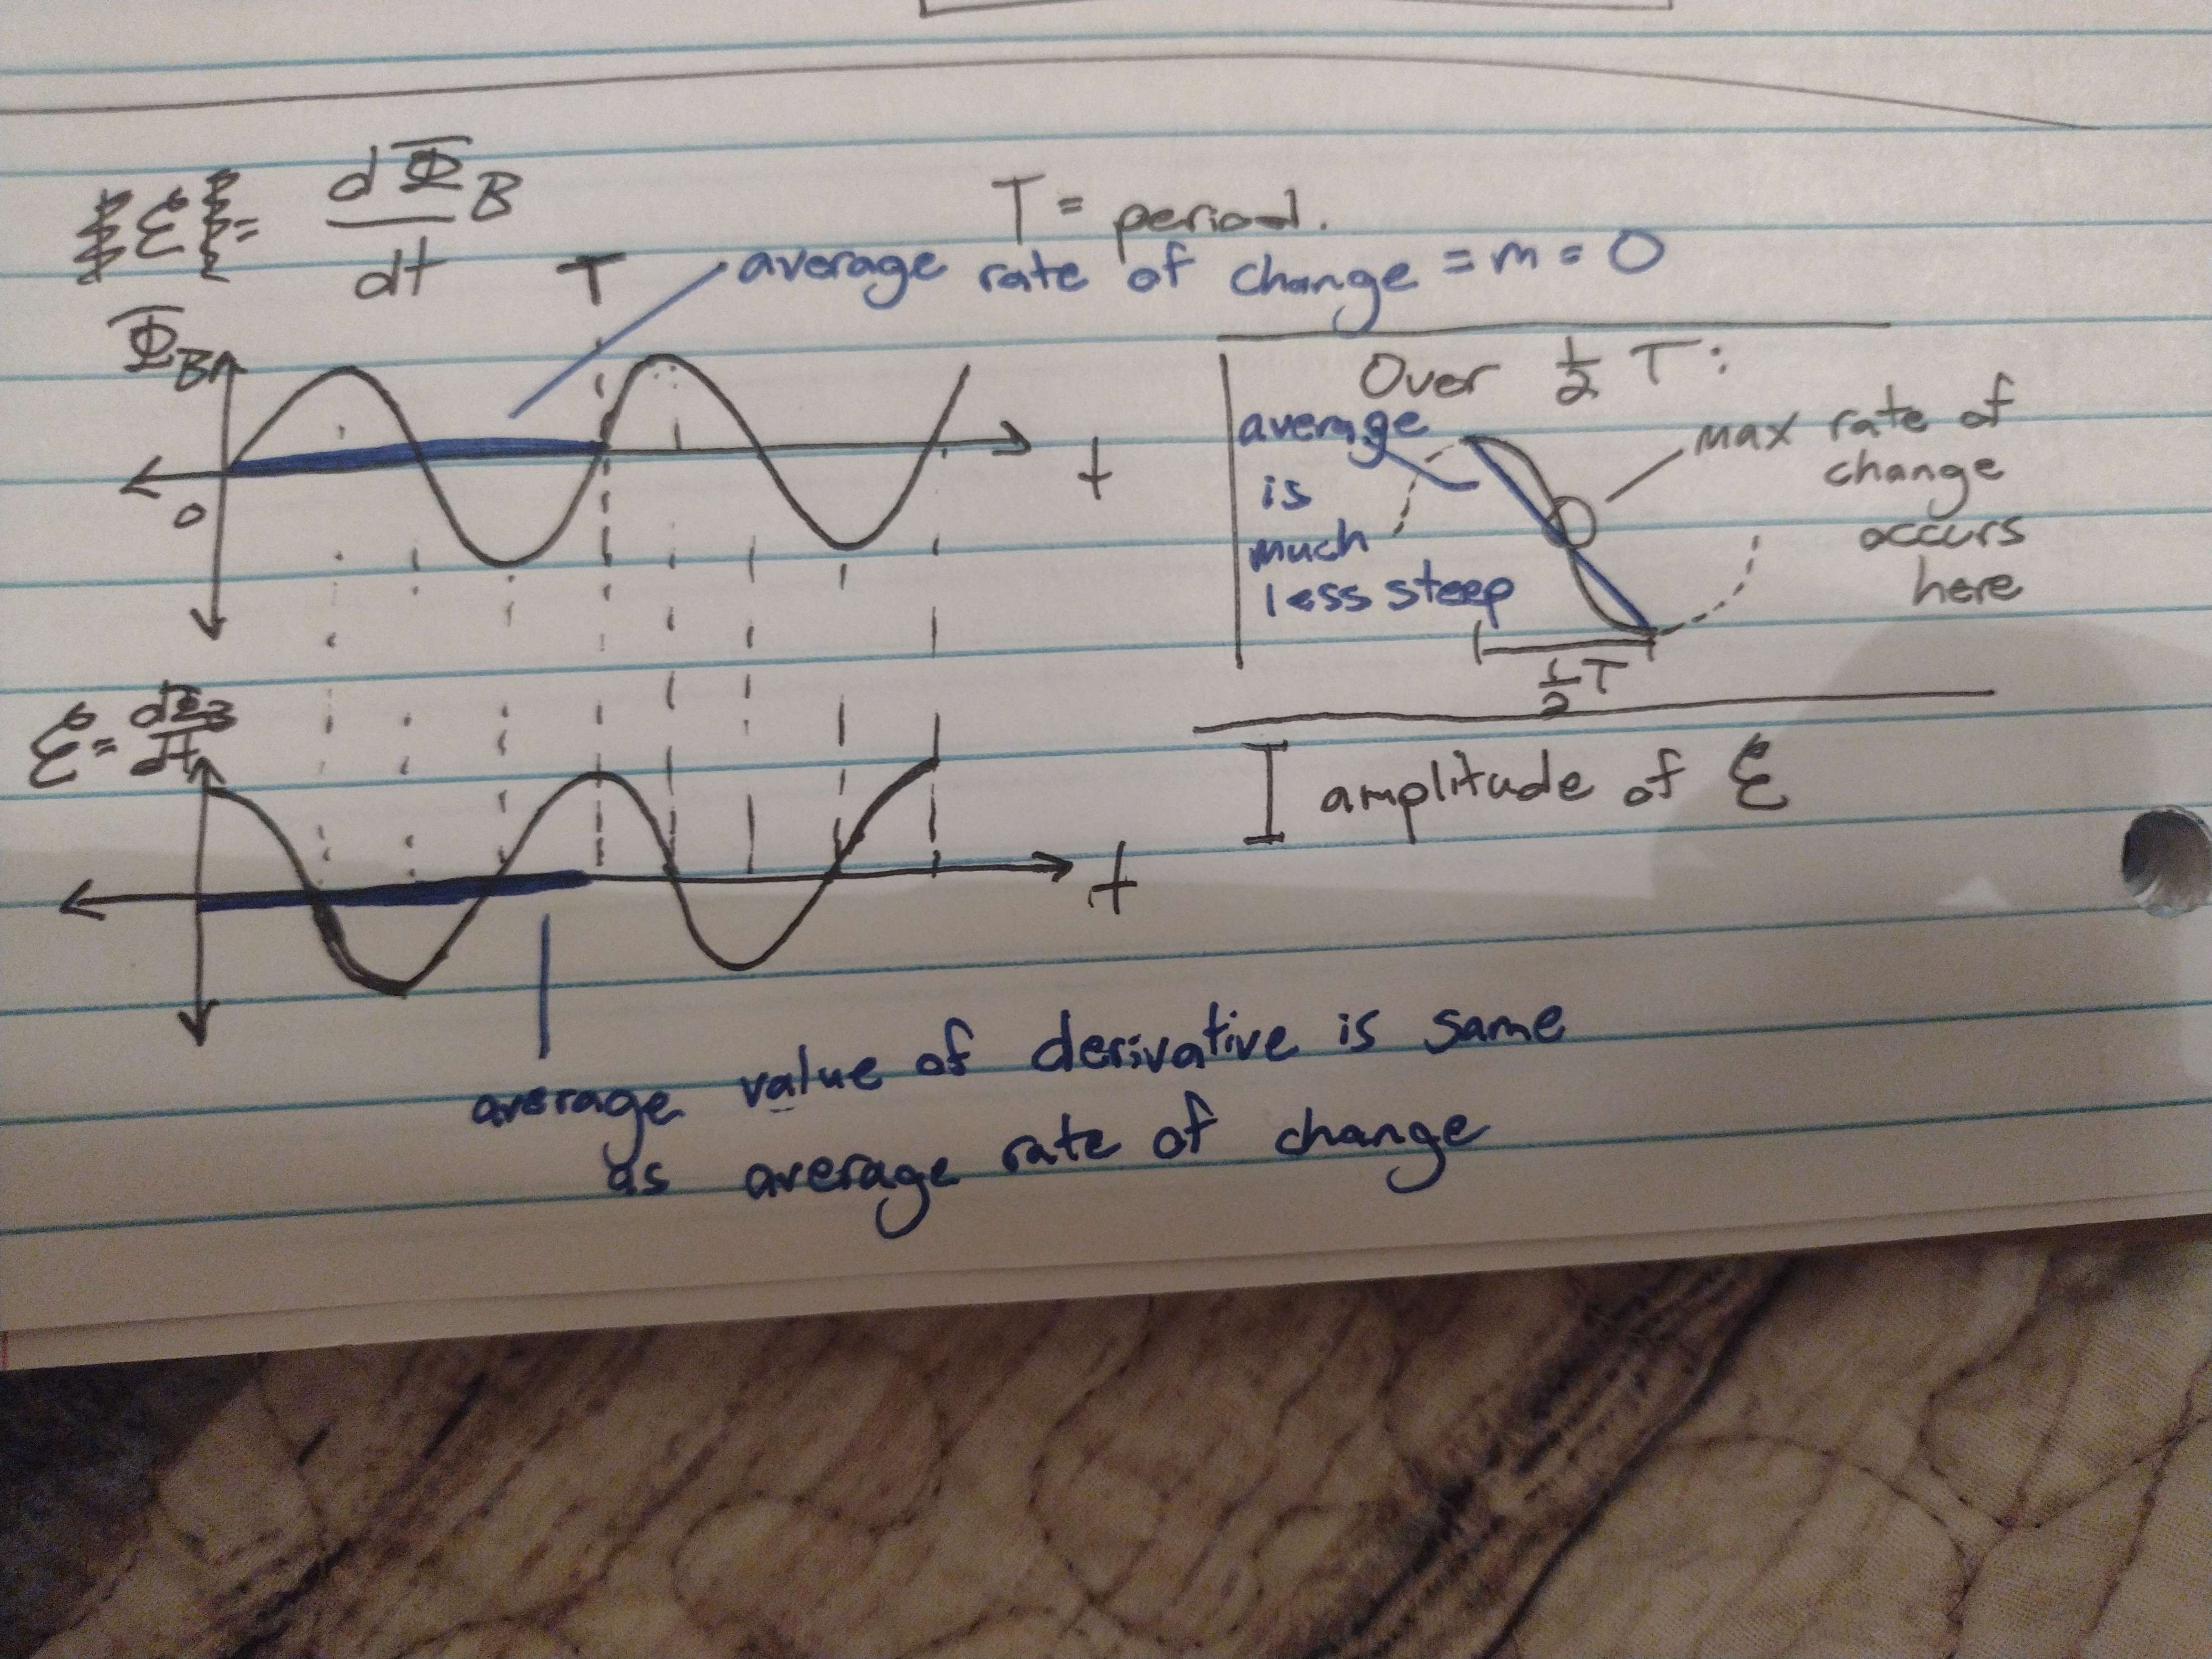 ℰ = dΦ_B
dt
T = period.
T
average rate of change = m = 0
Φ_B
0
t
Over 1/2 T:
average
is
much
less steep
max rate of
change
occurs
here
1/2 T
ℰ = dΦ_B
dt
t
amplitude of ℰ
average value of derivative is same
as average rate of change